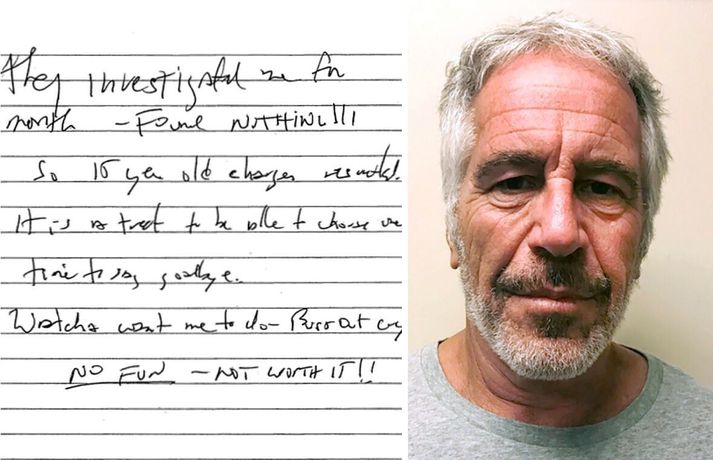 They investigated me for
month - Found NOTHING!!!
So 15 year old charges resulted.
It is a treat to be able to choose
time to say goodbye.
Watcha want me to do - Burst out cry
NO FUN - NOT WORTH IT!!